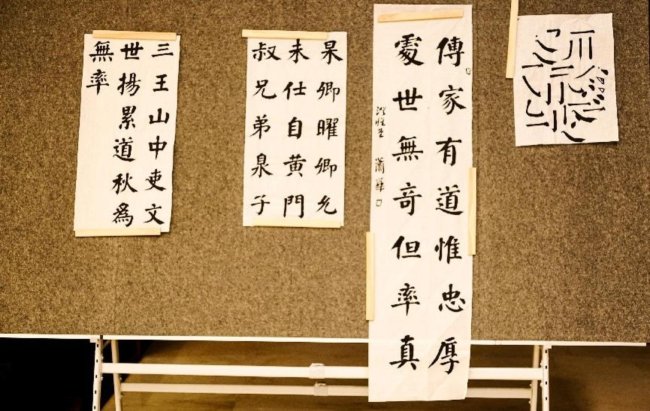 傳家有道惟忠厚
處世無奇但率真
杲卿曜卿允
未仕自黃門
叔兄弟泉子
三王山中吏文
世揚累道秋爲
無率